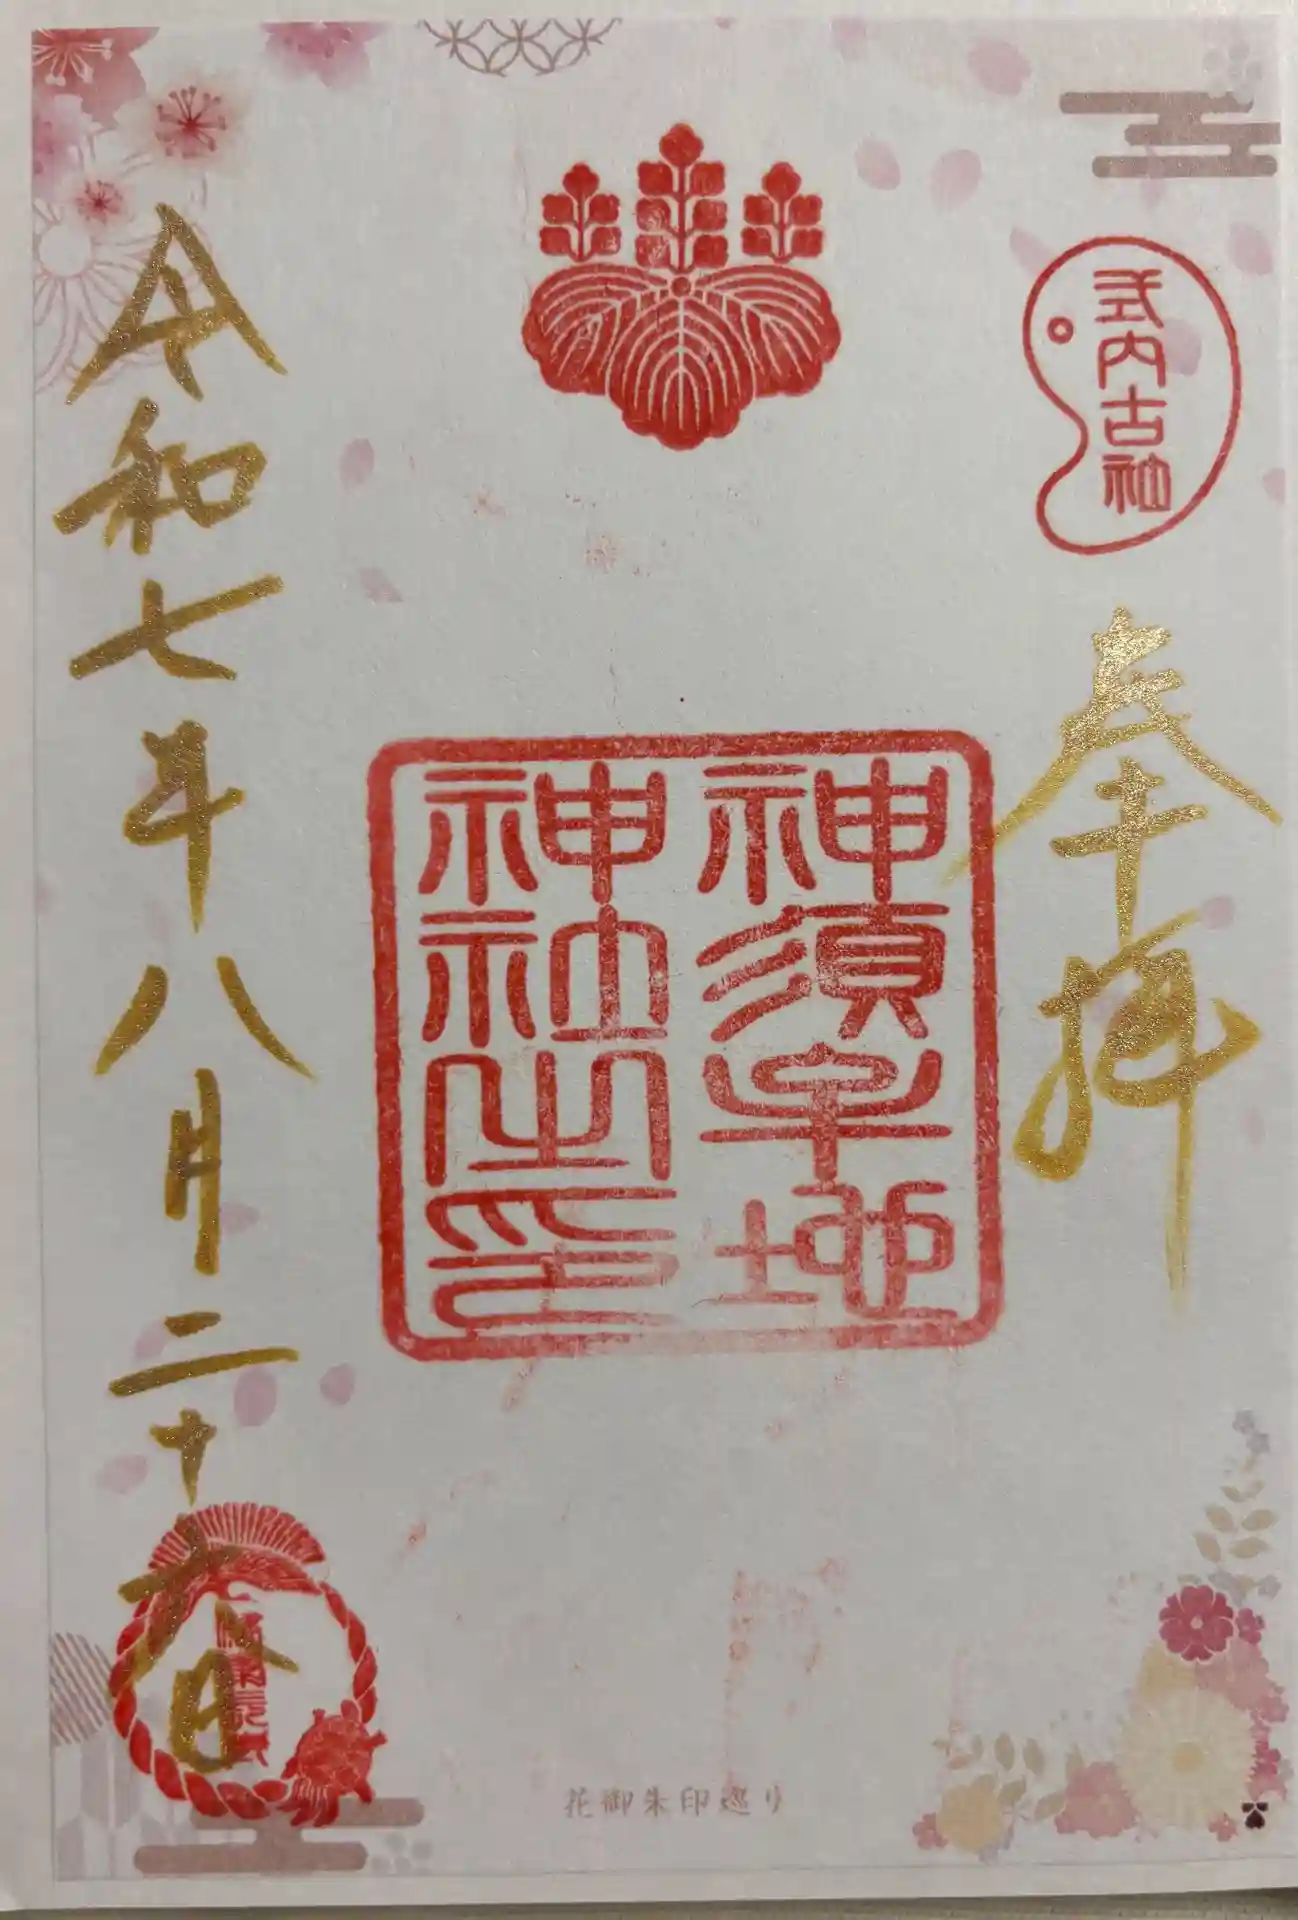 式内古社
奉拝
神須牟地
神社之印
令和七年八月二十六日
花御朱印巡り